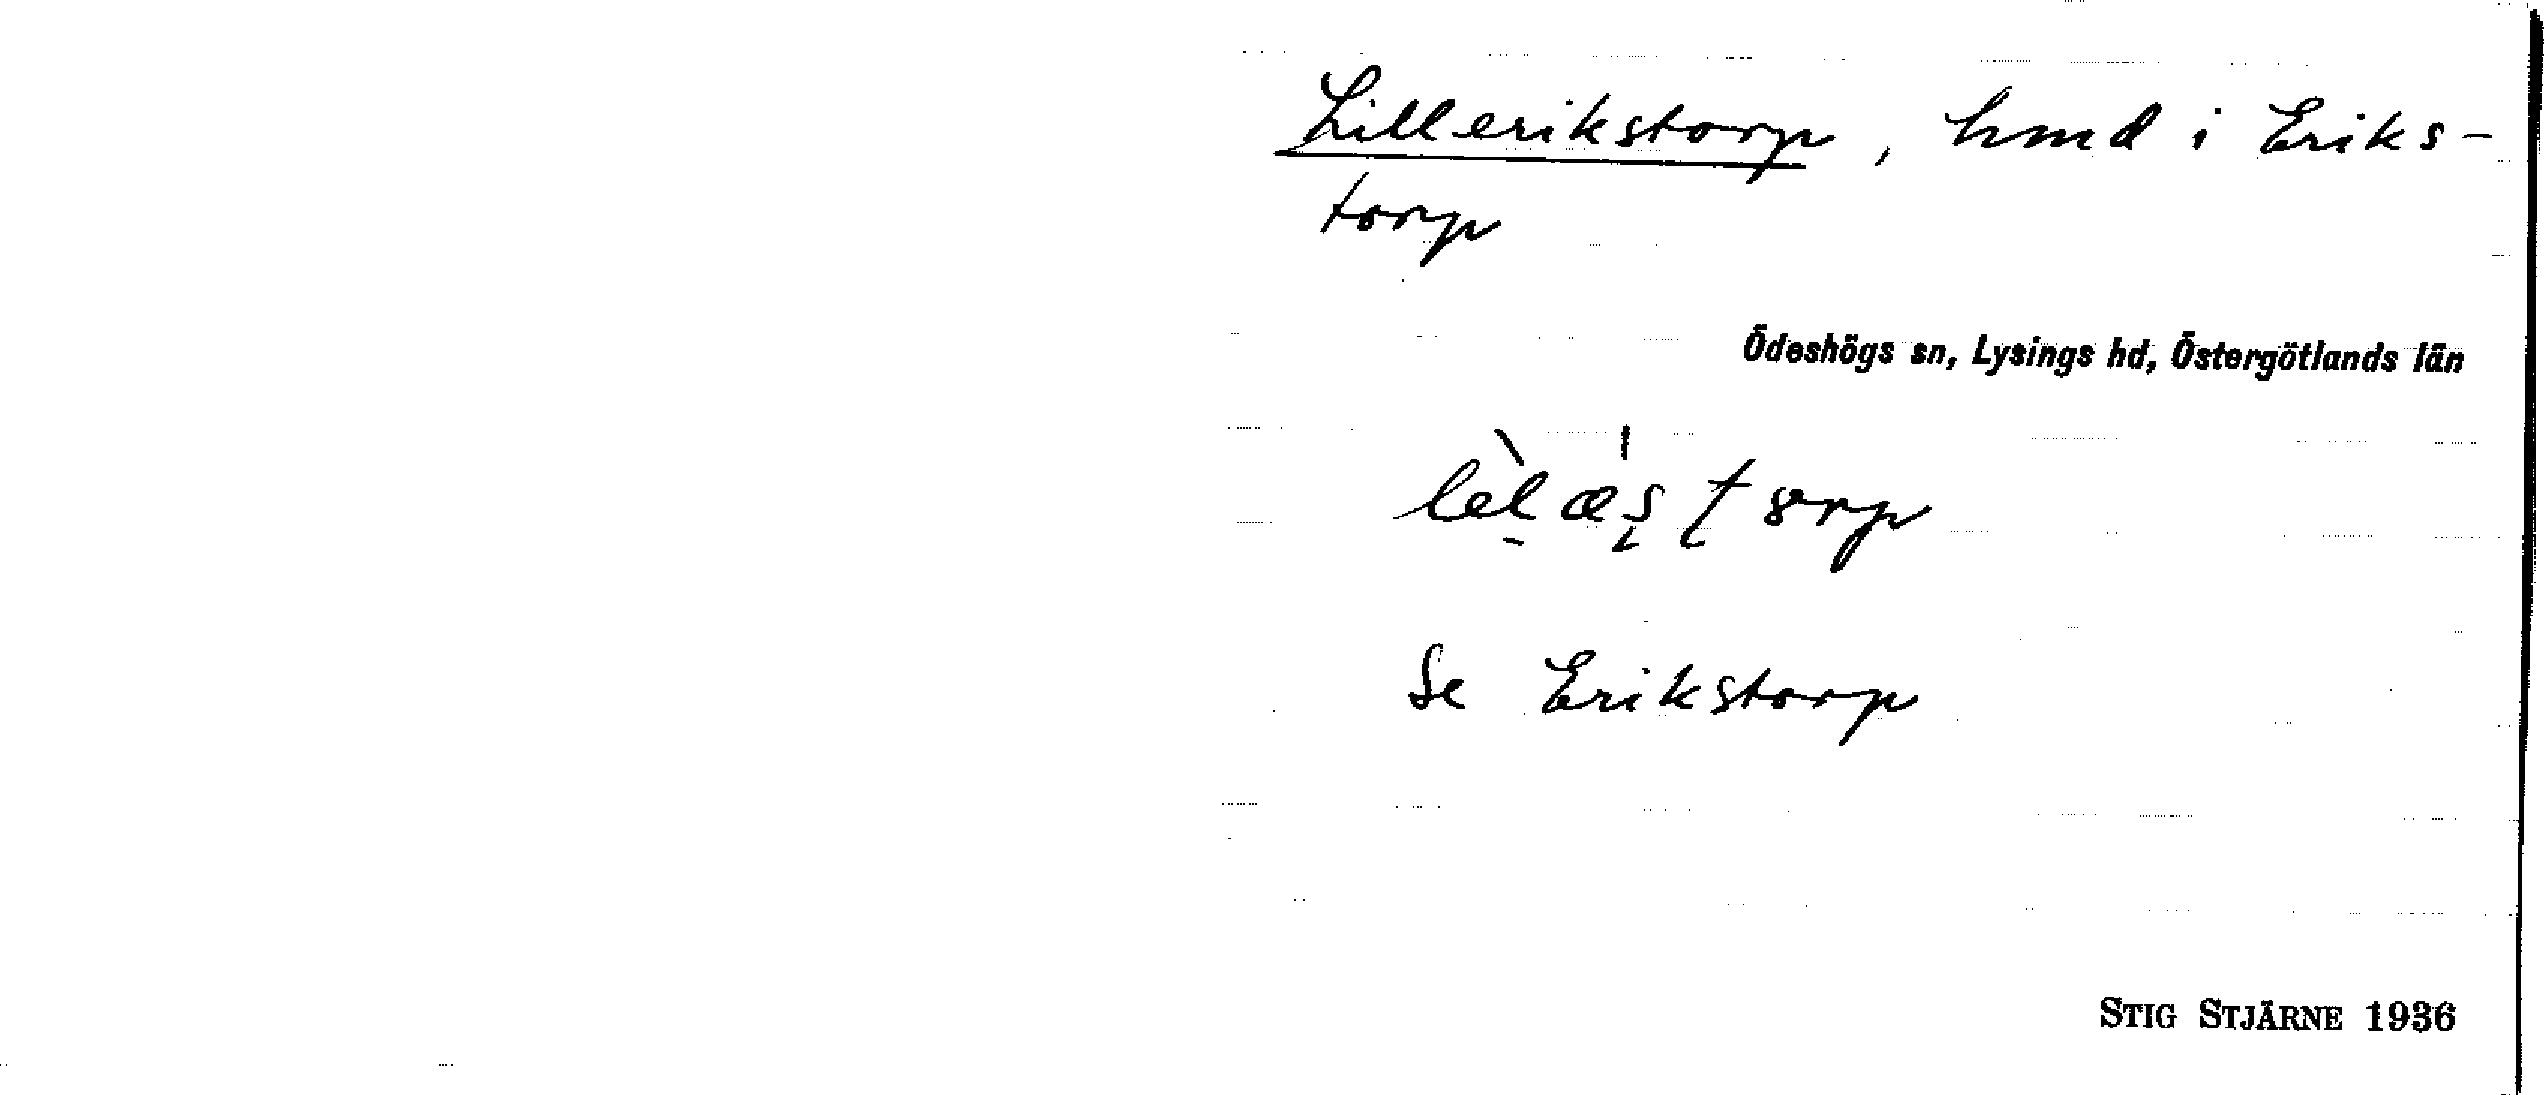 Lillerikstorp, hmd i Eriks-
torp
Ödeshögs sn, Lysings hd, Östergötlands län
Se Erikstorp
STIG STJÄRNE 1936